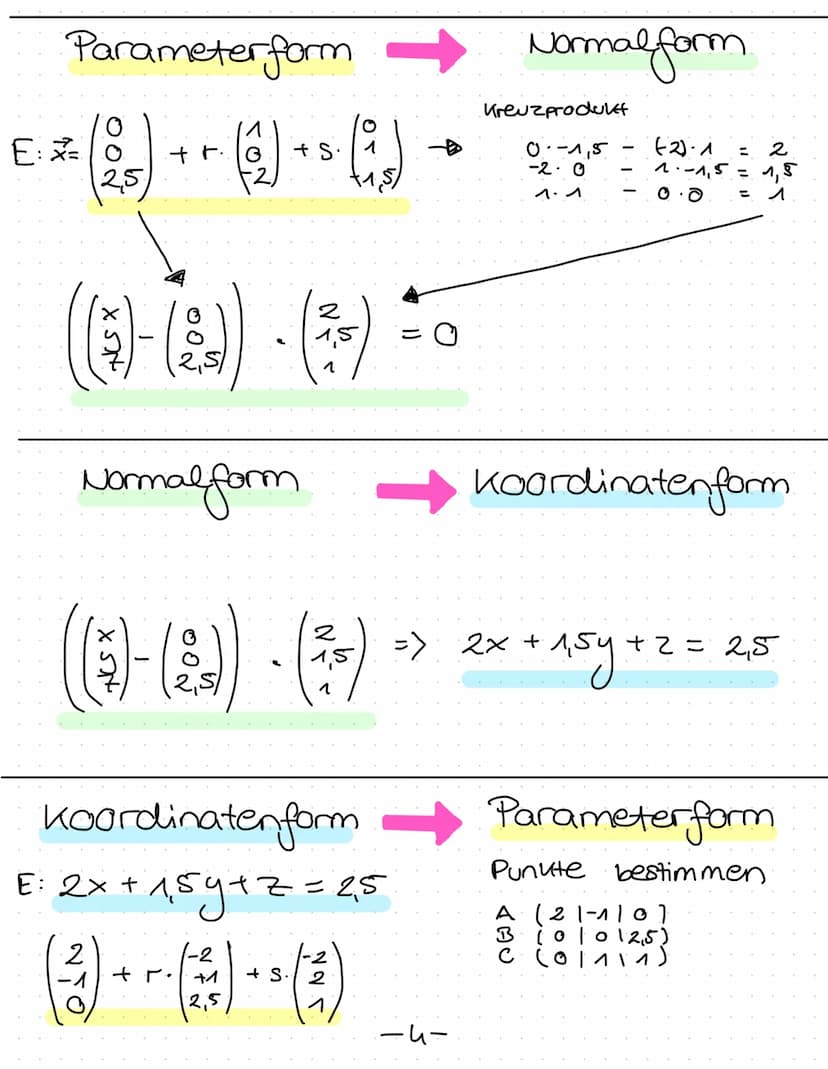 Parameterform → Normalform
Kreuzprodukt
E: x⃗ = (0 0 2,5) + r · (1 0 -2) + s · (0 1 -1,5) →
0 · -1,5 - (-2) · 1 = 2
-2 · 0 - 1 · -1,5 = 1,5
1 · 1 - 0 · 0 = 1
((x y z) - (0 0 2,5)) · (2 1,5 1) = 0
Normalform → Koordinatenform
((x y z) - (0 0 2,5)) · (2 1,5 1) => 2x + 1,5y + z = 2,5
Koordinatenform → Parameterform
E: 2x + 1,5y + z = 2,5
Punkte bestimmen
A (2 | -1 | 0)
B (0 | 0 | 2,5)
C (0 | 1 | 1)
(2 -1 0) + r · (-2 +1 2,5) + s · (-2 2 1)
-4-